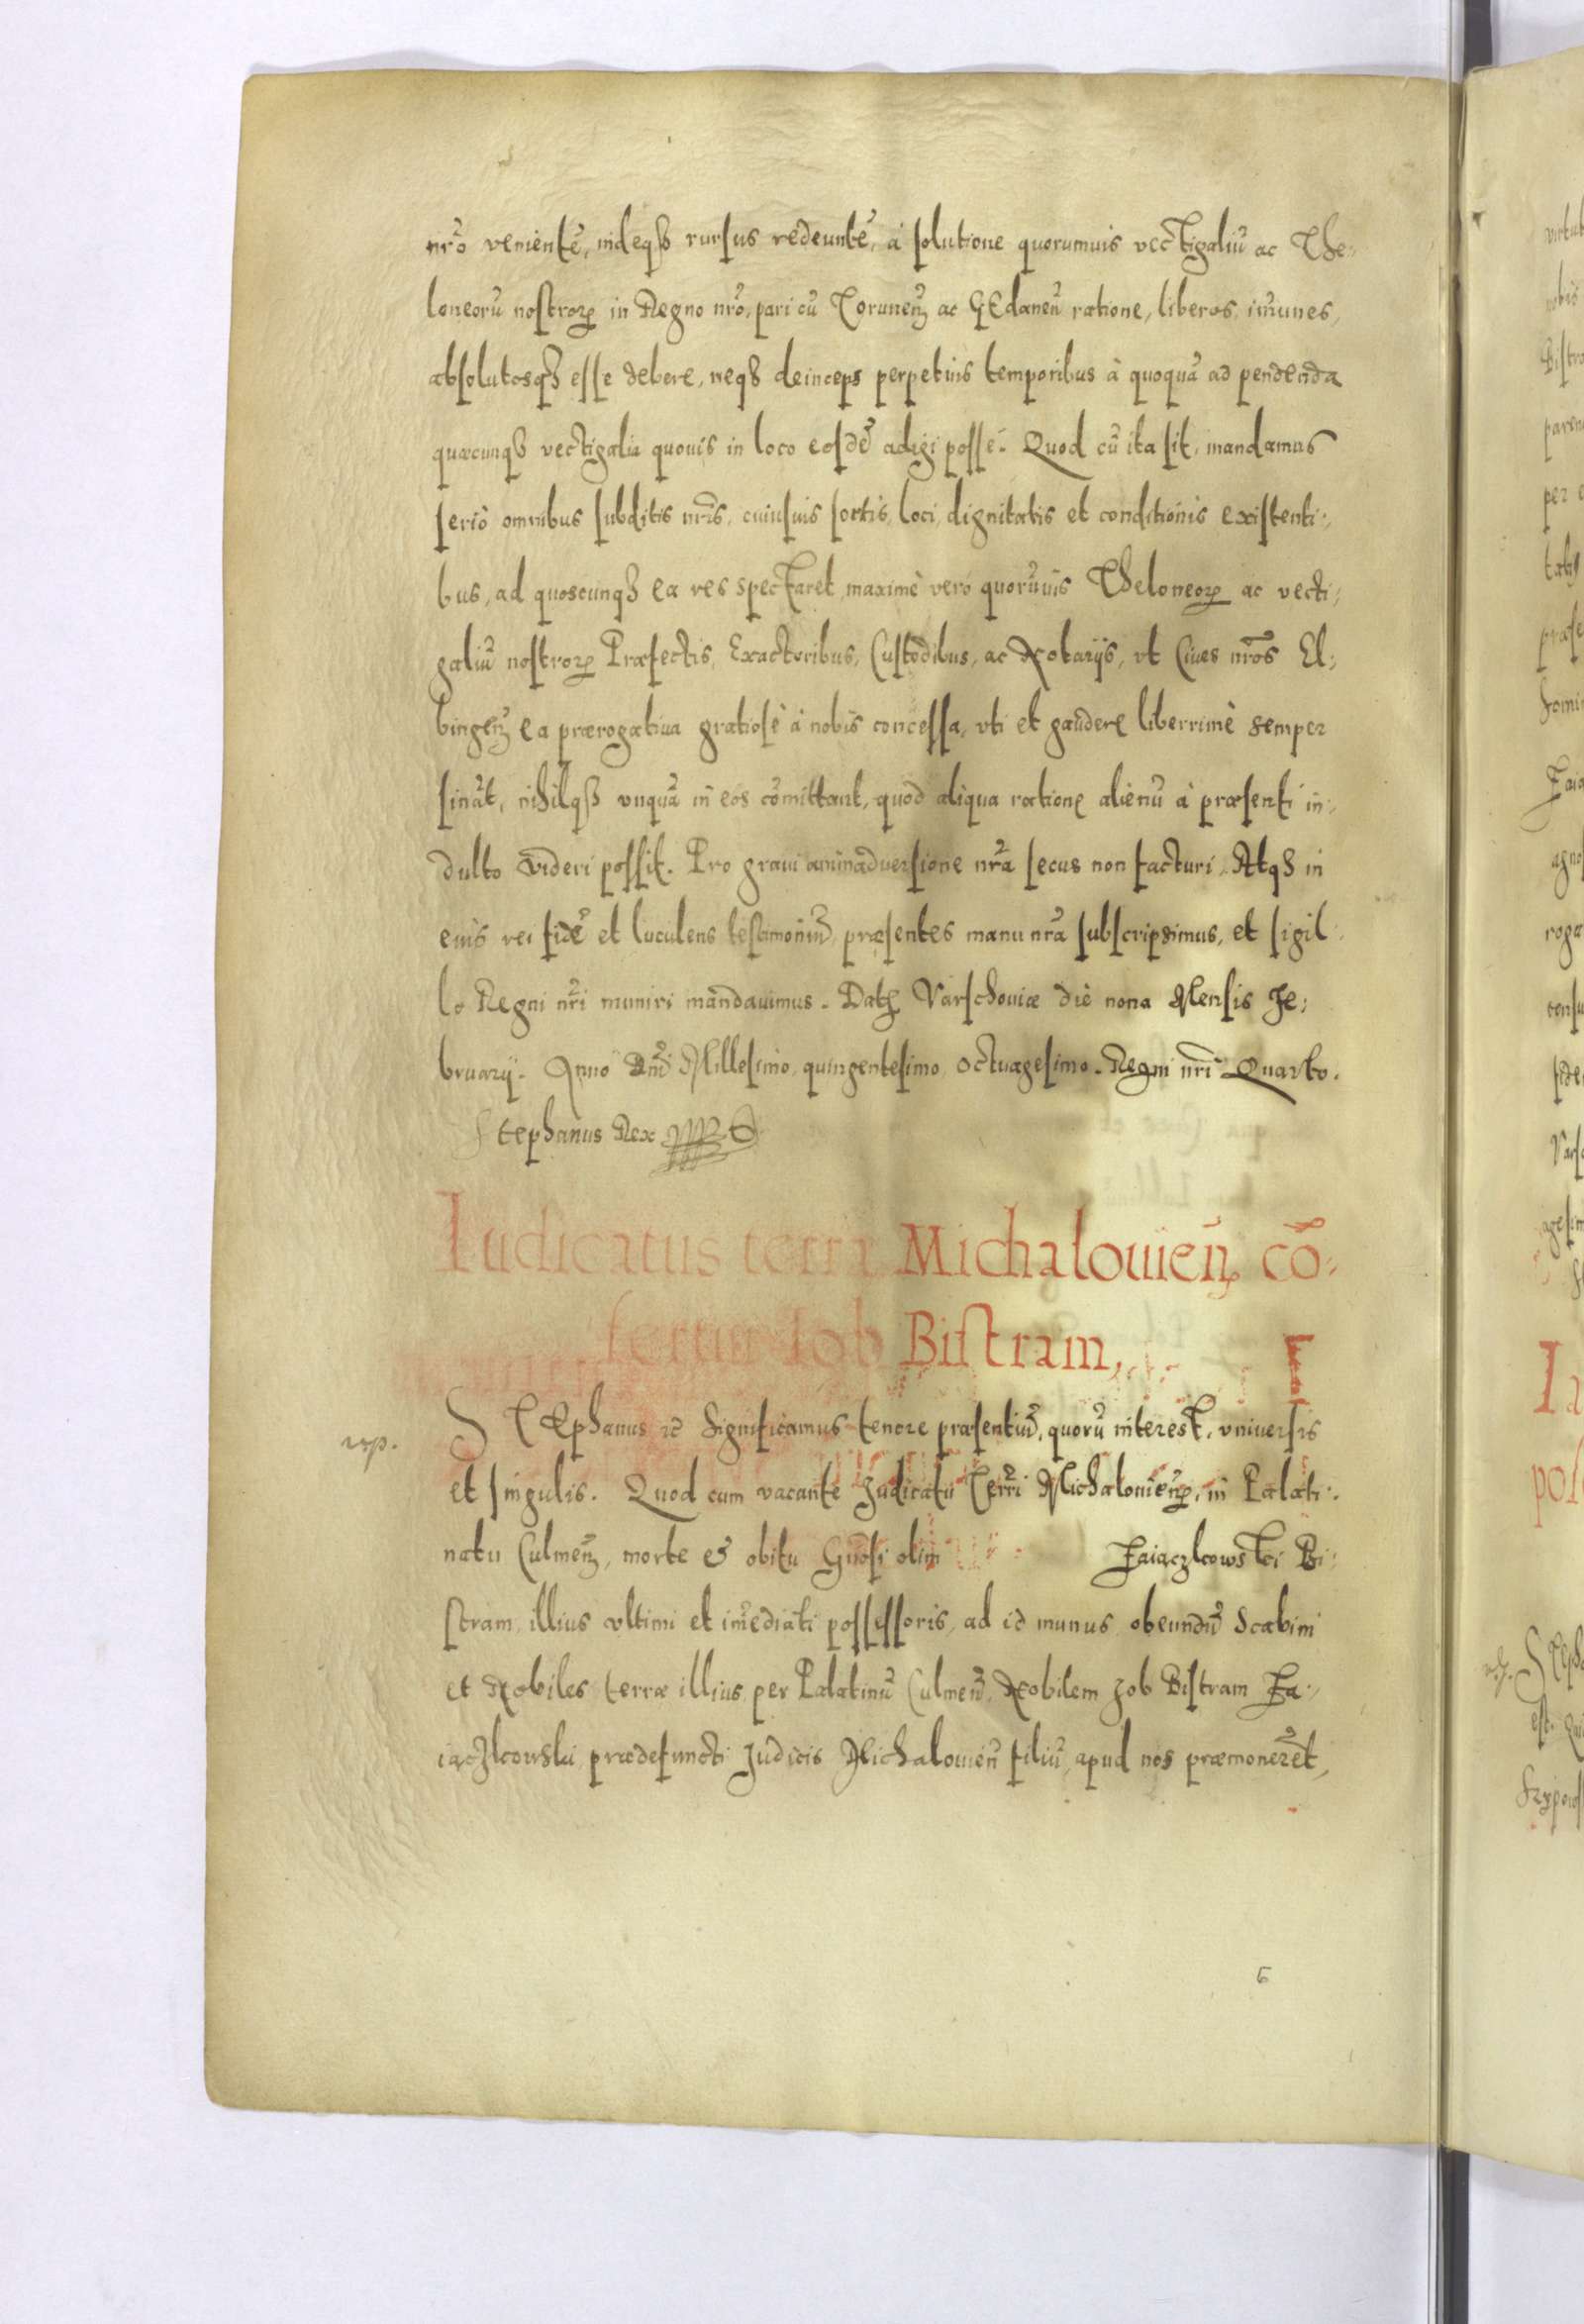 nr̃o venientẽ, indeqȝ rursus redeuntẽ, à solutione quorumuis vectigaliũ ac The-
loneorũ nostroꝝ in Regno nr̃o, pari cũ Toruneñ ac GEdaneñ ratione, liberos, im̃unes,
absolutosqȝ esse debere, neqȝ deinceps perpetuis temporibus à quoquã ad pendenda
quæcunqȝ vectigalia quouis in loco eosdẽ adigi posse. Quod cũ ita sit, mandamus
seriò omnibus subditis nr̃is, cuiusuis sortis, loci, dignitatis et conditionis existenti-
bus, ad quoscunqȝ ea res spectaret, maximè verò quorũuis Theloneoꝝ ac vecti-
galiũ nostroꝝ Præfectis, Exactoribus, Custodibus, ac Notarijs, vt Ciues nr̃os El-
bingeñ ea prærogatiua gratiosè à nobis concessa, vti et gaudere liberrimè semper
sinãt, nihilqȝ vnquã in eos cõmittant, quod aliqua ratione alienũ à præsenti in-
dulto videri possit. Pro graui animaduersione nr̃a secus non facturi. Atqȝ in
eius rei fidẽ et luculens testimoniũ, præsentes manu nr̃a subscripsimus, et sigil-
lo Regni nr̃i muniri mandauimus. Datȝ Varschouiæ die nona Mensis Fe-
bruarij. Anno Dñi Millesimo, quingentesimo, octuagesimo. Regni nr̃i Quarto.
Stephanus Rex
Iudicatus terræ Michalouieñ cõ-
fertur Iob Bistram,
STEphanus ꝛc Significamus tenore præsentiũ, quorũ interest, vniuersis
et singulis. Quod cum vacante Judicatu Terr̃i Michalouieñ, in Palati-
natu Culmeñ, morte et obitu Gñosi olim Zaiączkowski Bi-
stram, illius vltimi et im̃ediati possessoris, ad id munus obeundũ Scabini
et Nobiles terræ illius, per Palatinũ Culmeñ, Nobilem Job Bistram Za-
iączkowski, prædefuncti Judicis Michalouieñ filiũ, apud nos præmonerẽt,
6